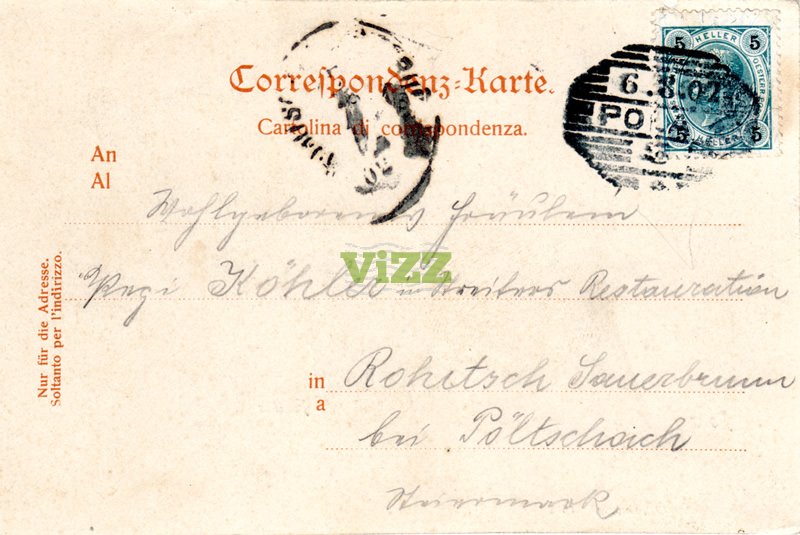 Correspondenz-Karte.
Cartolina di corrispondenza.
HELLER
5 5
5 5
HELLER
6.8.02
PO
An
Al
Wohlgeboren Fräulein
Pepi Köhler in Streiters Restauration
in
a
Rohitsch Sauerbrunn
bei Pöltschach
Steiermark
Nur für die Adresse.
Soltanto per l'indirizzo.
vizz